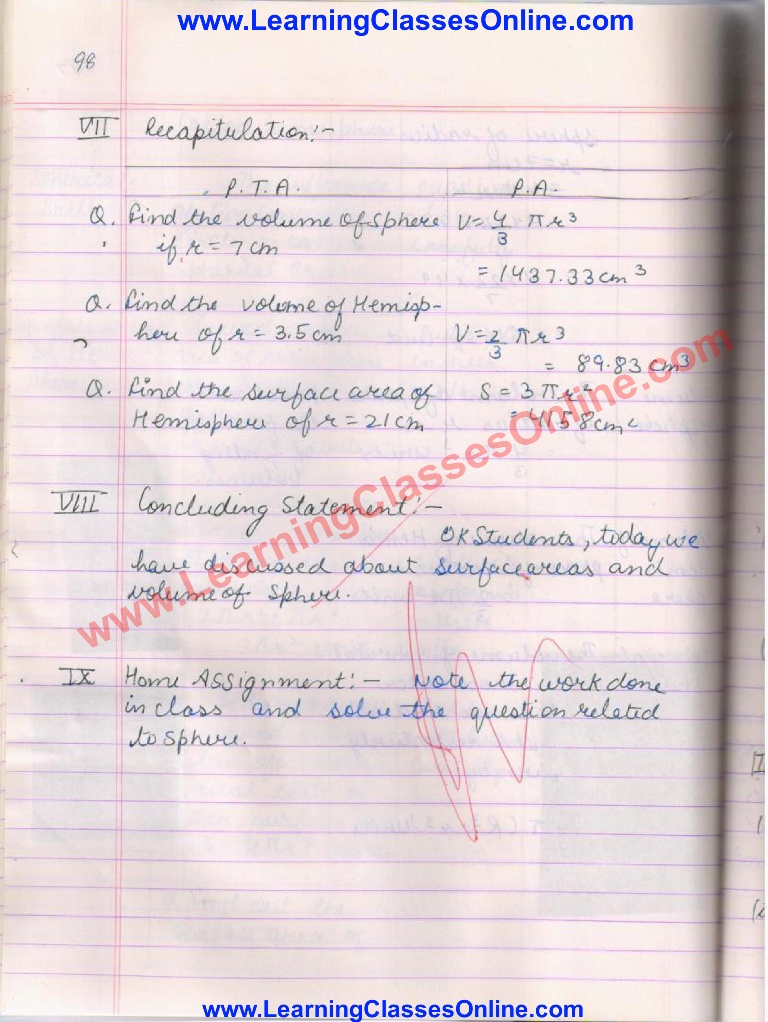 www.LearningClassesOnline.com
98
VII Recapitulation:-
P.T.A. P.A.
Q. Find the volume of Sphere V = 4/3 πr³
if r = 7 cm
= 1437.33 cm³
Q. Find the volume of Hemisp-
here of r = 3.5 cm V = 2/3 πr³
= 89.83 cm³
Q. Find the surface area of S = 3πr²
Hemisphere of r = 21 cm = 4158 cm²
VIII Concluding Statement:-
OK Students, today we
have discussed about surface areas and
volume of Sphere.
IX Home Assignment:- Note the work done
in class and solve the question related
to Sphere.
www.LearningClassesOnline.com
www.LearningClassesOnline.com